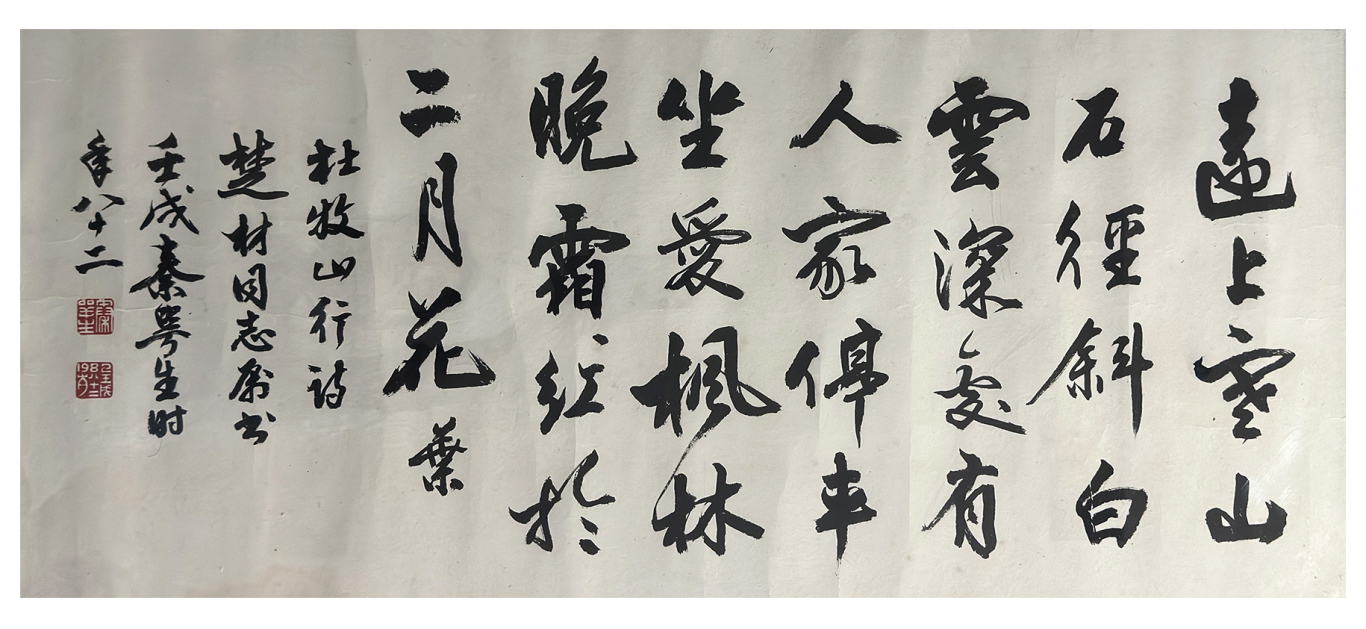 遠上寒山
石徑斜白
雲深處有
人家停車
坐愛楓林
晚霜紅於
二月花 葉
杜牧山行詩
楚材同志属书
壬戌秦咢生时
年八十二
秦咢生